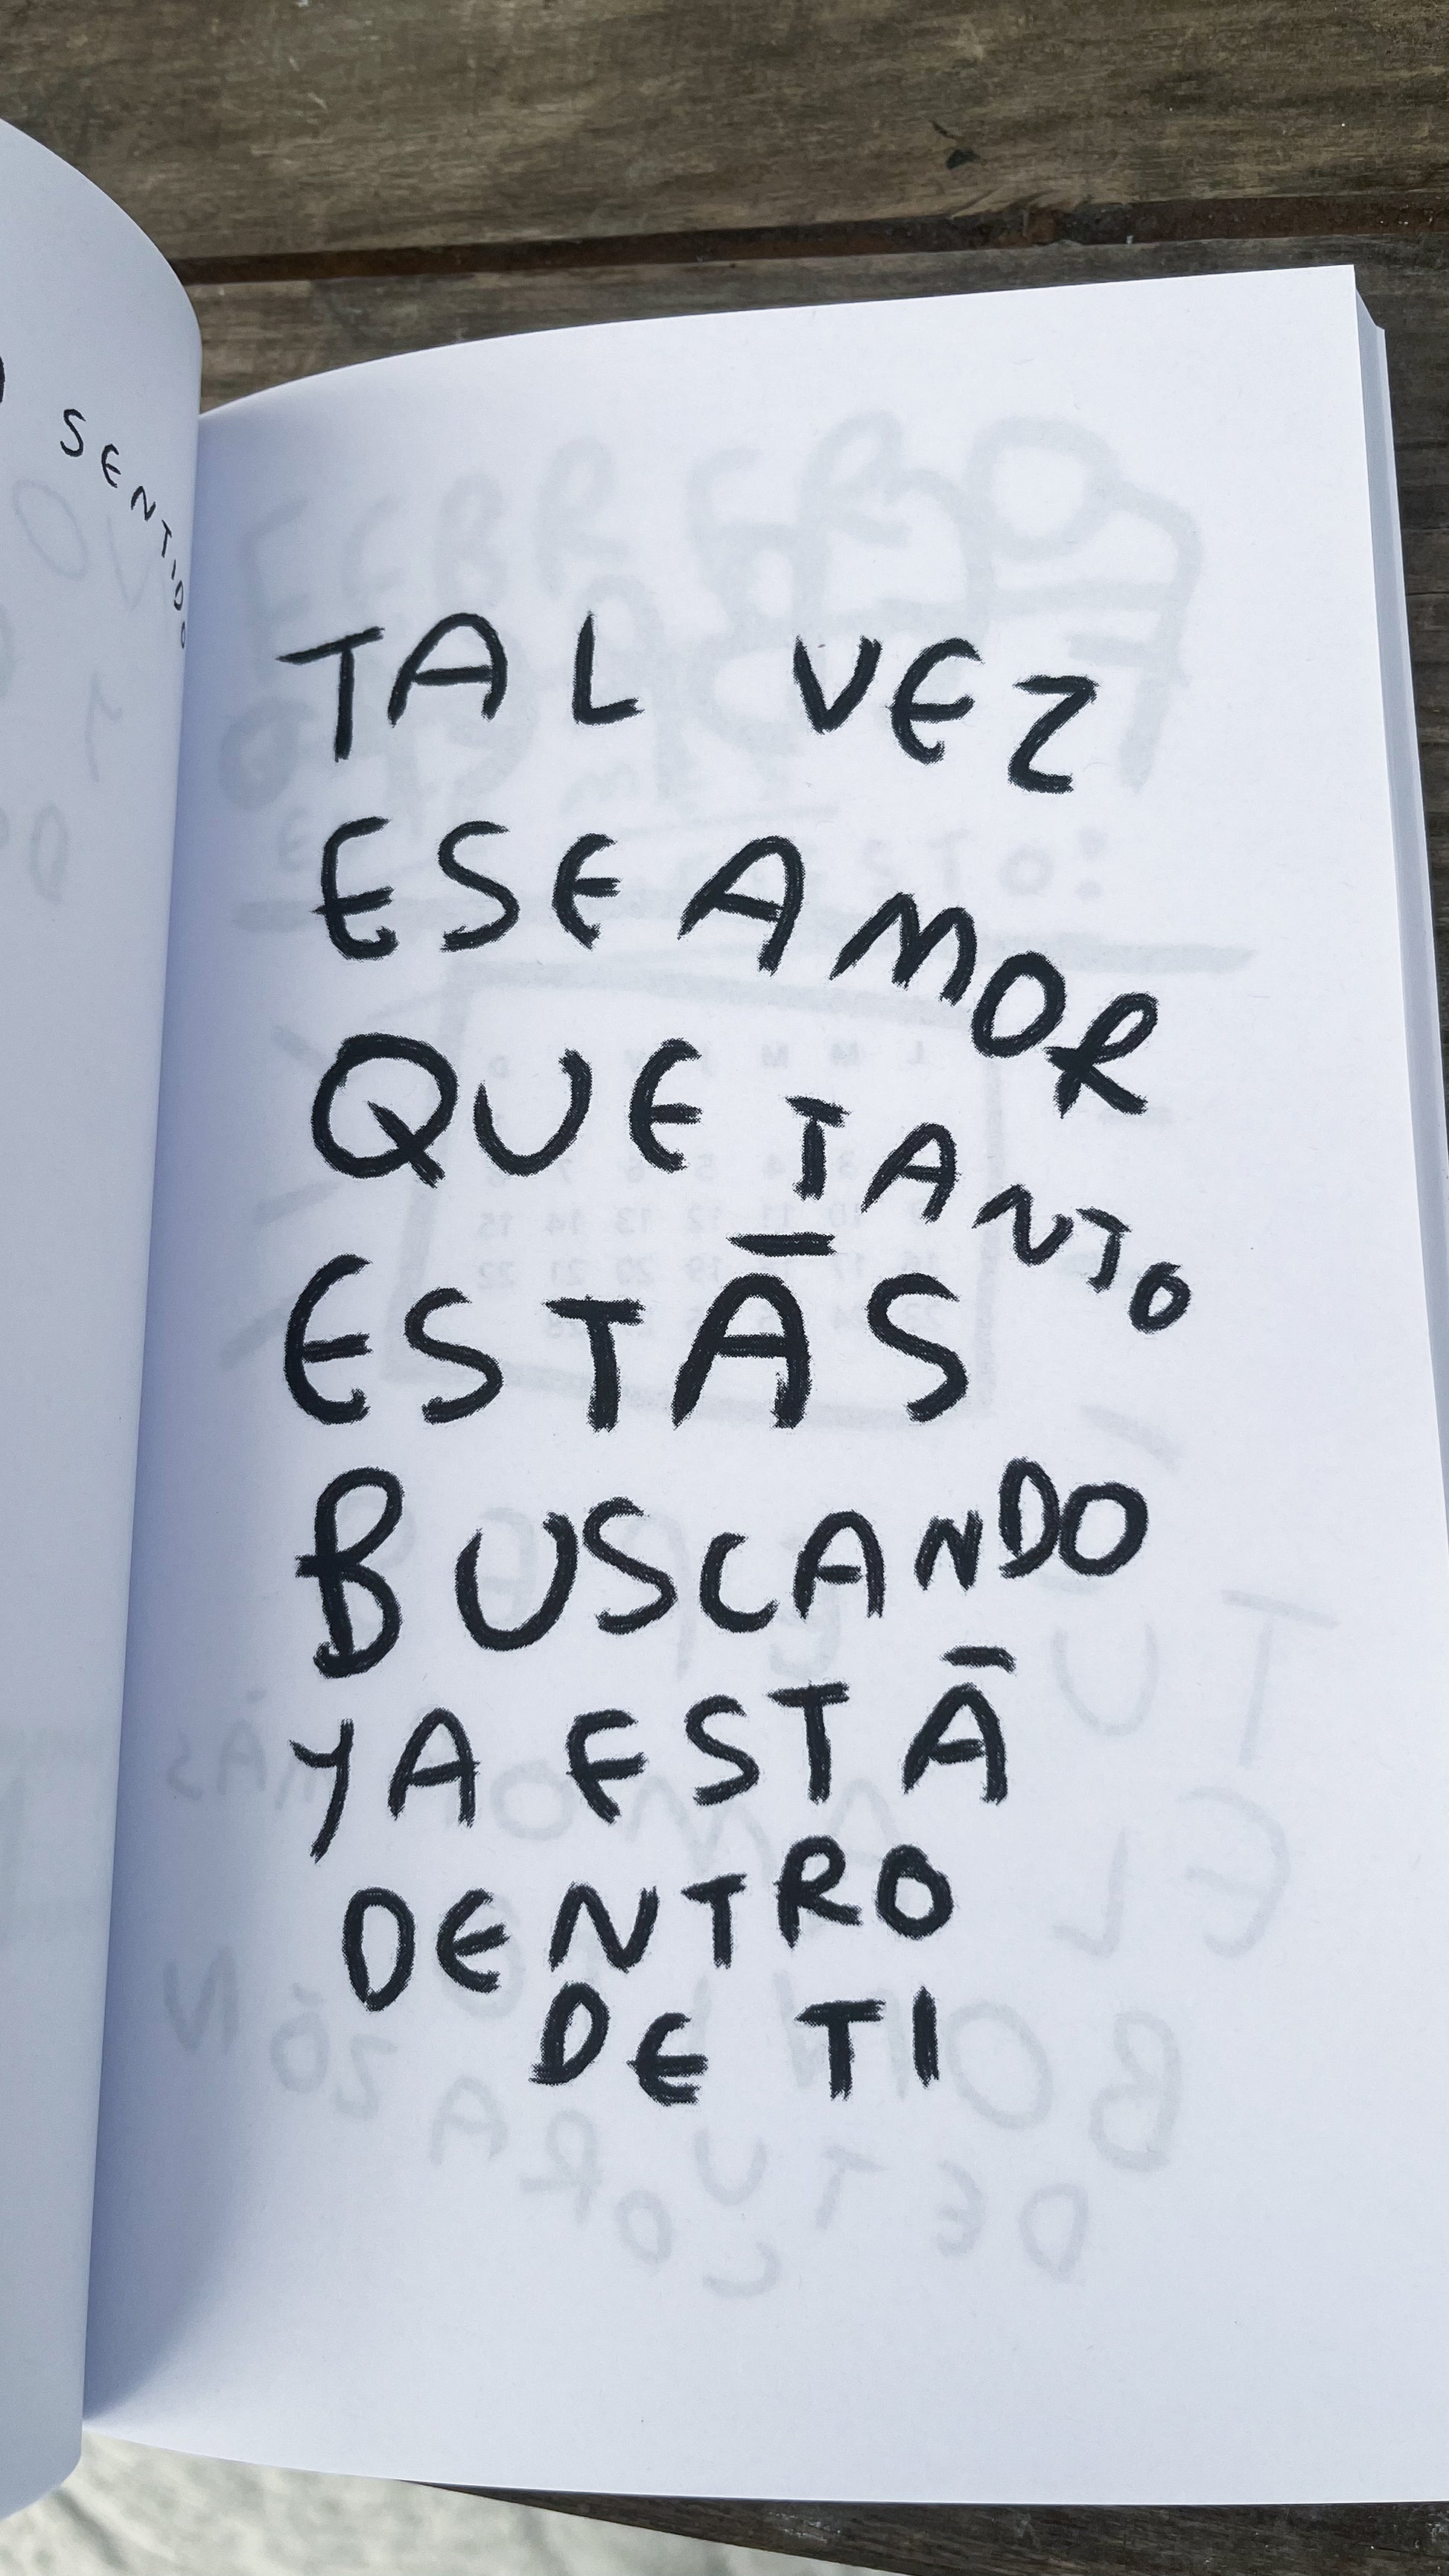 SENTIDO
TAL VEZ
ESE AMOR
QUE TANTO
ESTÁS
BUSCANDO
YA ESTÁ
DENTRO
DE TI